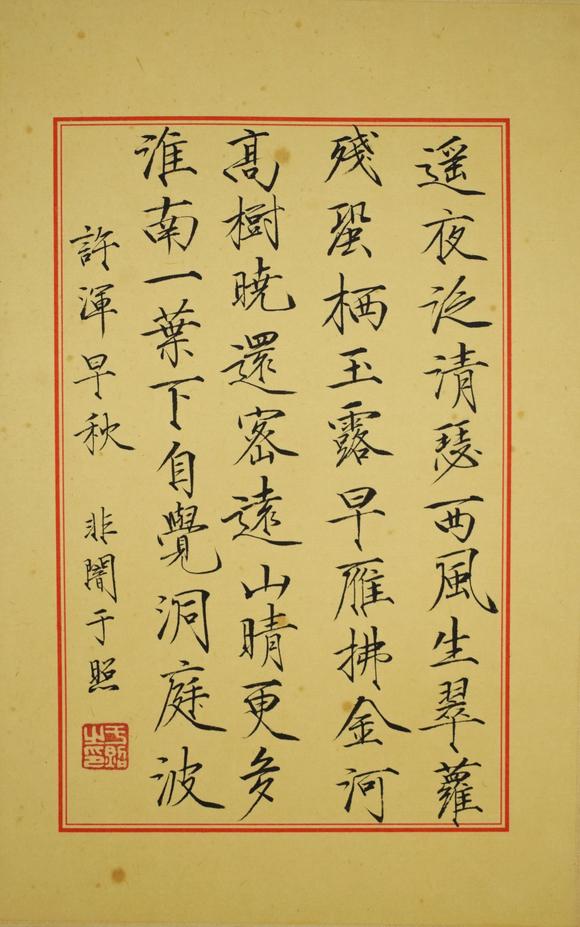 遥夜泛清瑟西風生翠蘿
殘蛩栖玉露早雁拂金河
髙樹曉還密遠山晴更多
淮南一葉下自覺洞庭波
許渾早秋 非闇于照
于照之印